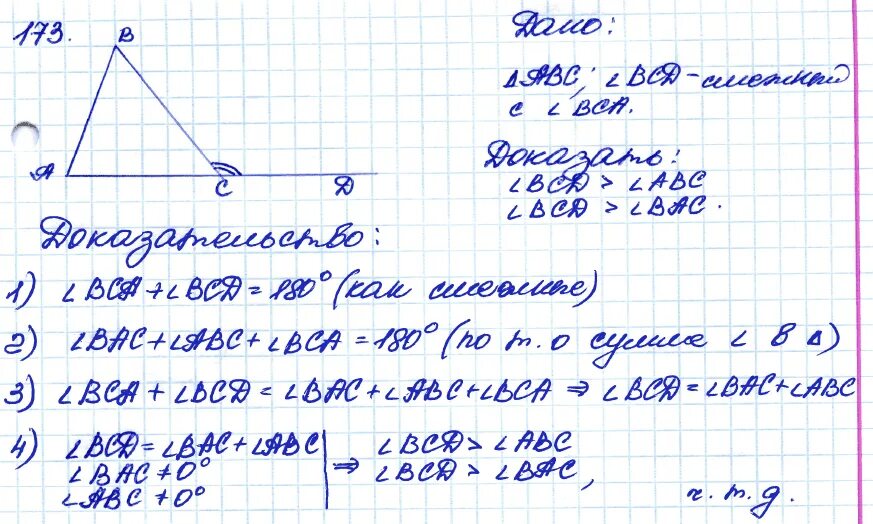 173.
B
A
C
D
Дано:
△ABC; ∠BCD - смежный
с ∠BCA.
Доказать:
∠BCD > ∠ABC
∠BCD > ∠BAC.
Доказательство:
1) ∠BCA + ∠BCD = 180° (как смежные)
2) ∠BAC + ∠ABC + ∠BCA = 180° (по т. о сумме ∠ в △)
3) ∠BCA + ∠BCD = ∠BAC + ∠ABC + ∠BCA ⇒ ∠BCD = ∠BAC + ∠ABC
4) ∠BCD = ∠BAC + ∠ABC
∠BAC ≠ 0°
∠ABC ≠ 0°
⇒ ∠BCD > ∠ABC
∠BCD > ∠BAC,
ч. т. д.